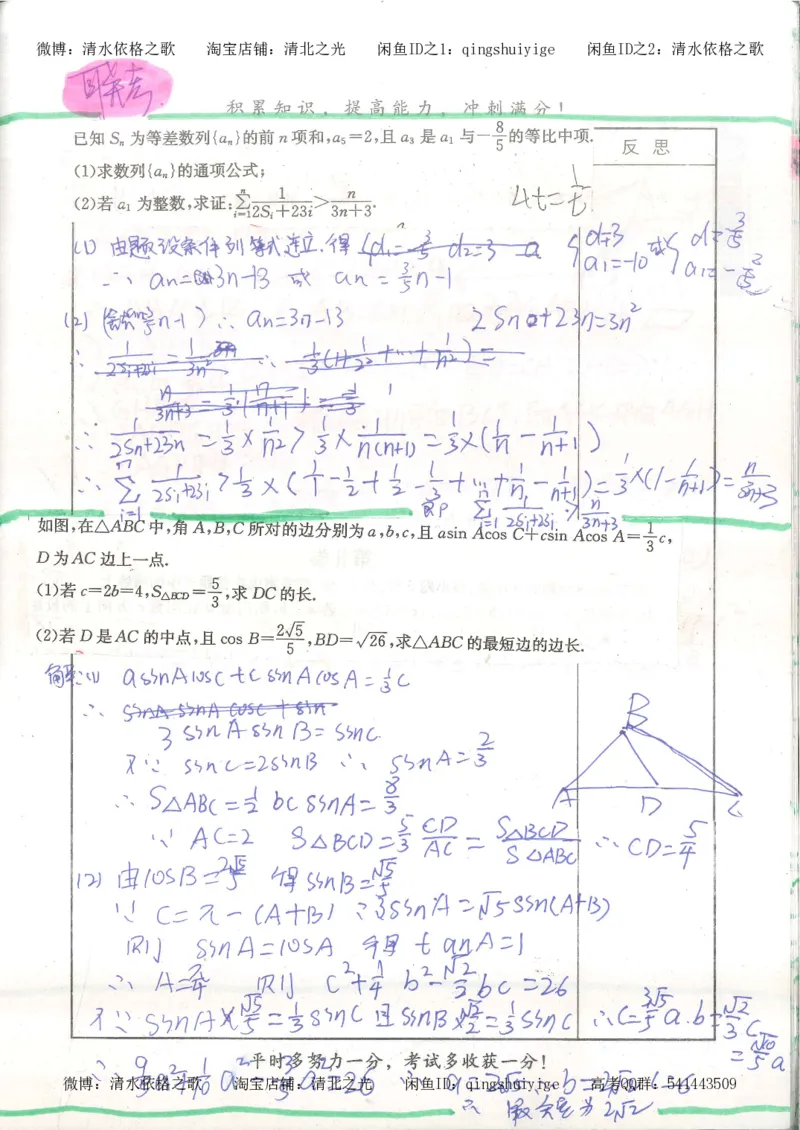 微博：清水依格之歌 淘宝店铺：清北之光 闲鱼ID之1：qingshuiyige 闲鱼ID之2：清水依格之歌
联考
积累知识，提高能力，冲刺满分！
已知 Sₙ 为等差数列{aₙ}的前 n 项和,a₅=2,且 a₃ 是 a₁ 与 -8/5 的等比中项.
反 思
(1)求数列{aₙ}的通项公式;
(2)若 a₁ 为整数,求证: ∑_{i=1}^{n} 1/(2Sᵢ+23i) > n/(3n+3).
4t=1/t
(1) 由题设条件列等式连立.得 { d=3 a₁=-10 或 { d=3/5 a₁=-2/5
∴ aₙ=3n-13 或 aₙ=3/5n-1
(2) ∴ aₙ=3n-13 2Sn+23n=3n²
∴ 1/(2Sn+23n) = 1/3 × 1/n² > 1/3 × 1/(n(n+1)) = 1/3×(1/n - 1/(n+1))
∴ ∑_{i=1}^{n} 1/(2Si+23i) > 1/3 × (1 - 1/2 + 1/2 - 1/3 + … + 1/n - 1/(n+1)) = 1/3×(1 - 1/(n+1)) = n/(3n+3)
即 ∑_{i=1}^{n} 1/(2Si+23i) > n/(3n+3)
如图,在△ABC 中,角 A,B,C 所对的边分别为 a,b,c,且 asin Acos C+csin Acos A=1/3c,
D 为 AC 边上一点.
(1)若 c=2b=4,S△BCD=5/3,求 DC 的长.
(2)若 D 是 AC 的中点,且 cos B=2√5/5,BD=√26,求△ABC 的最短边的边长.
解:(1) asinAcosC+csinAcosA=1/3c
3sinAsinB=sinC
又∵ sinC=2sinB ∴ sinA=2/3
∴ S△ABC=1/2 bcsinA=8/3
∵ AC=2 S△BCD=5/3 CD/AC = S△BCD/S△ABC ∴ CD=5/4
B
A D C
(2) 由cosB=2√5/5 得sinB=√5/5
∵ C=π-(A+B) ∴ 3sinA=√5sin(A+B)
则 sinA=cosA 得 tanA=1
∴ A=π/4 则 c²+1/4b²-√2/2bc=26
又∵ sinA×√5/5=1/3sinC 且 sinB×√2/2=1/3sinC ∴ c=3√5/5a. b=√2/3c
=√10/5a
平时多努力一分，考试多收获一分！
微博：清水依格之歌 淘宝店铺：清北之光 闲鱼ID：qingshuiyige 高考QQ群：541443509
∴ 最短是为2√2